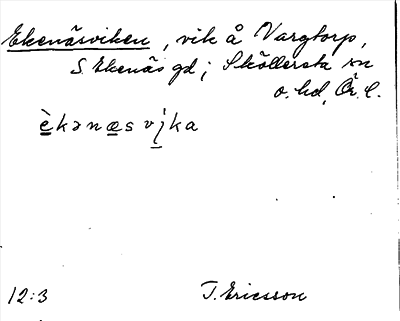 Ekenäsviken, vik å Vargtorp,
S. Ekenäs gd; Sköllersta sn
o. hd, Ör. l.
èkənæsvi̇ka
12:3 T. Ericsson